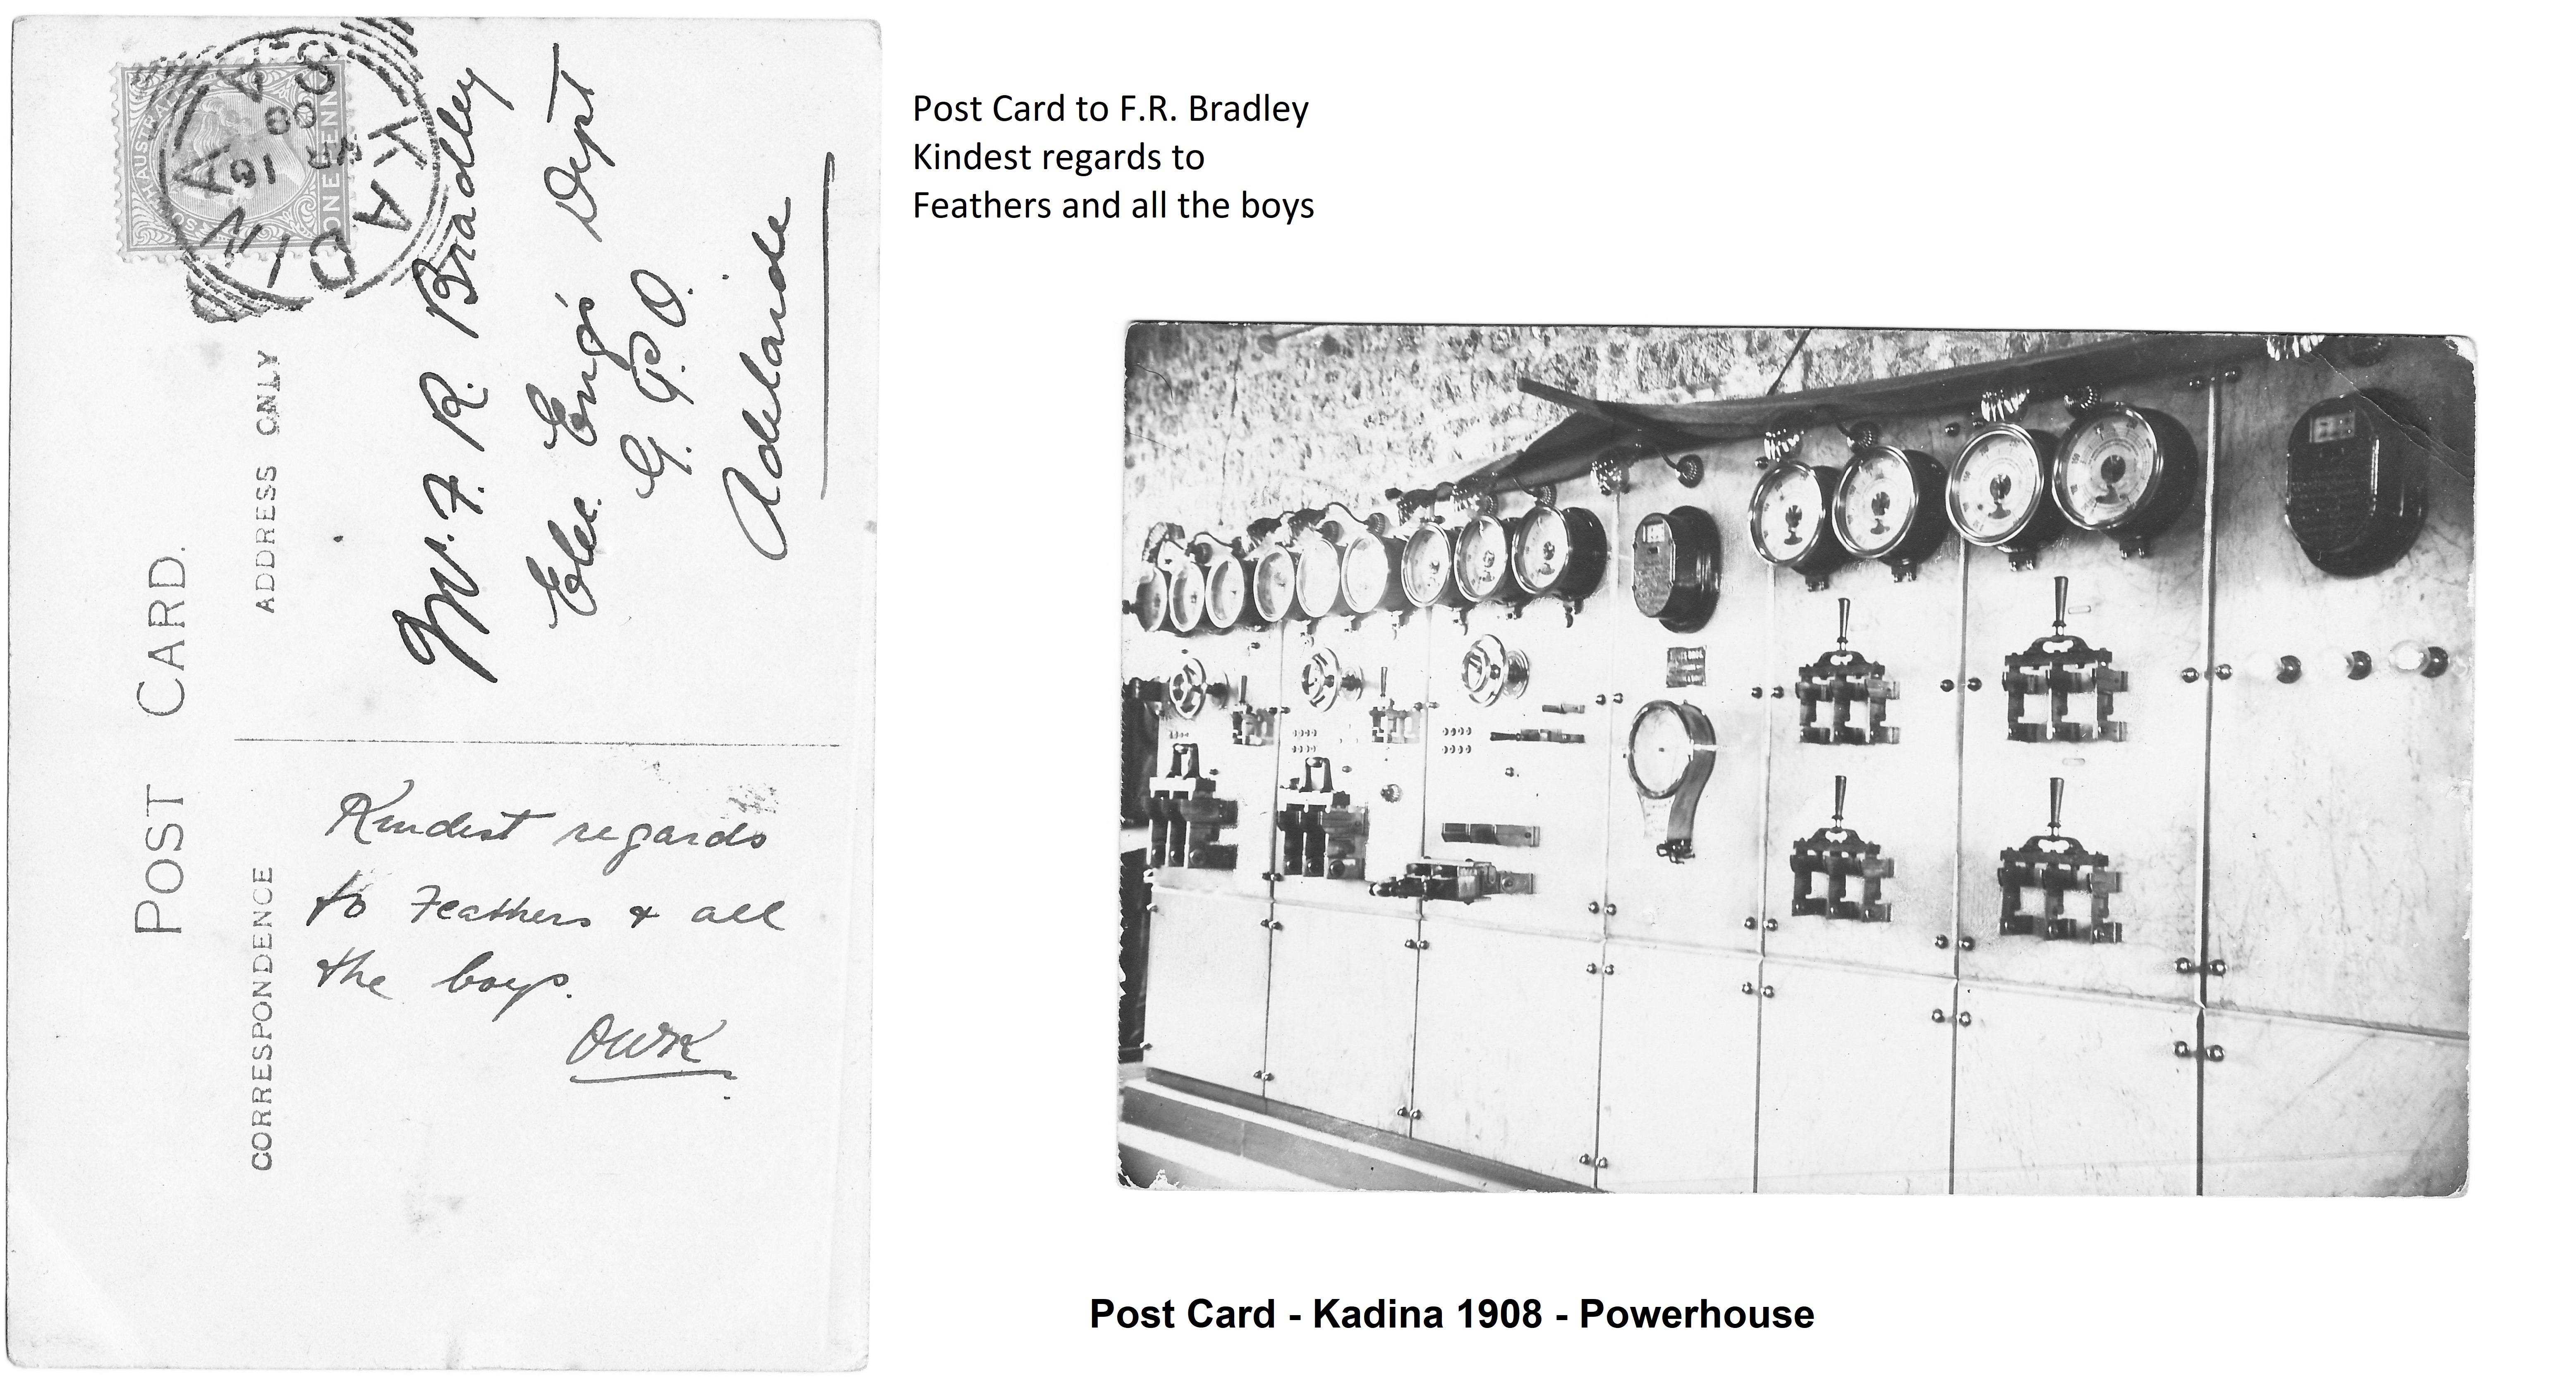 POST CARD.
ADDRESS ONLY
CORRESPONDENCE
SOUTH AUSTRALIA
ONE PENNY
KADINA
S A
Mr. F. R. Bradley
Elec. Eng's Dept
G. P. O.
Adelaide
Kindest regards
to Feathers & all
the boys.
OWK
Post Card to F.R. Bradley
Kindest regards to
Feathers and all the boys
Post Card - Kadina 1908 - Powerhouse